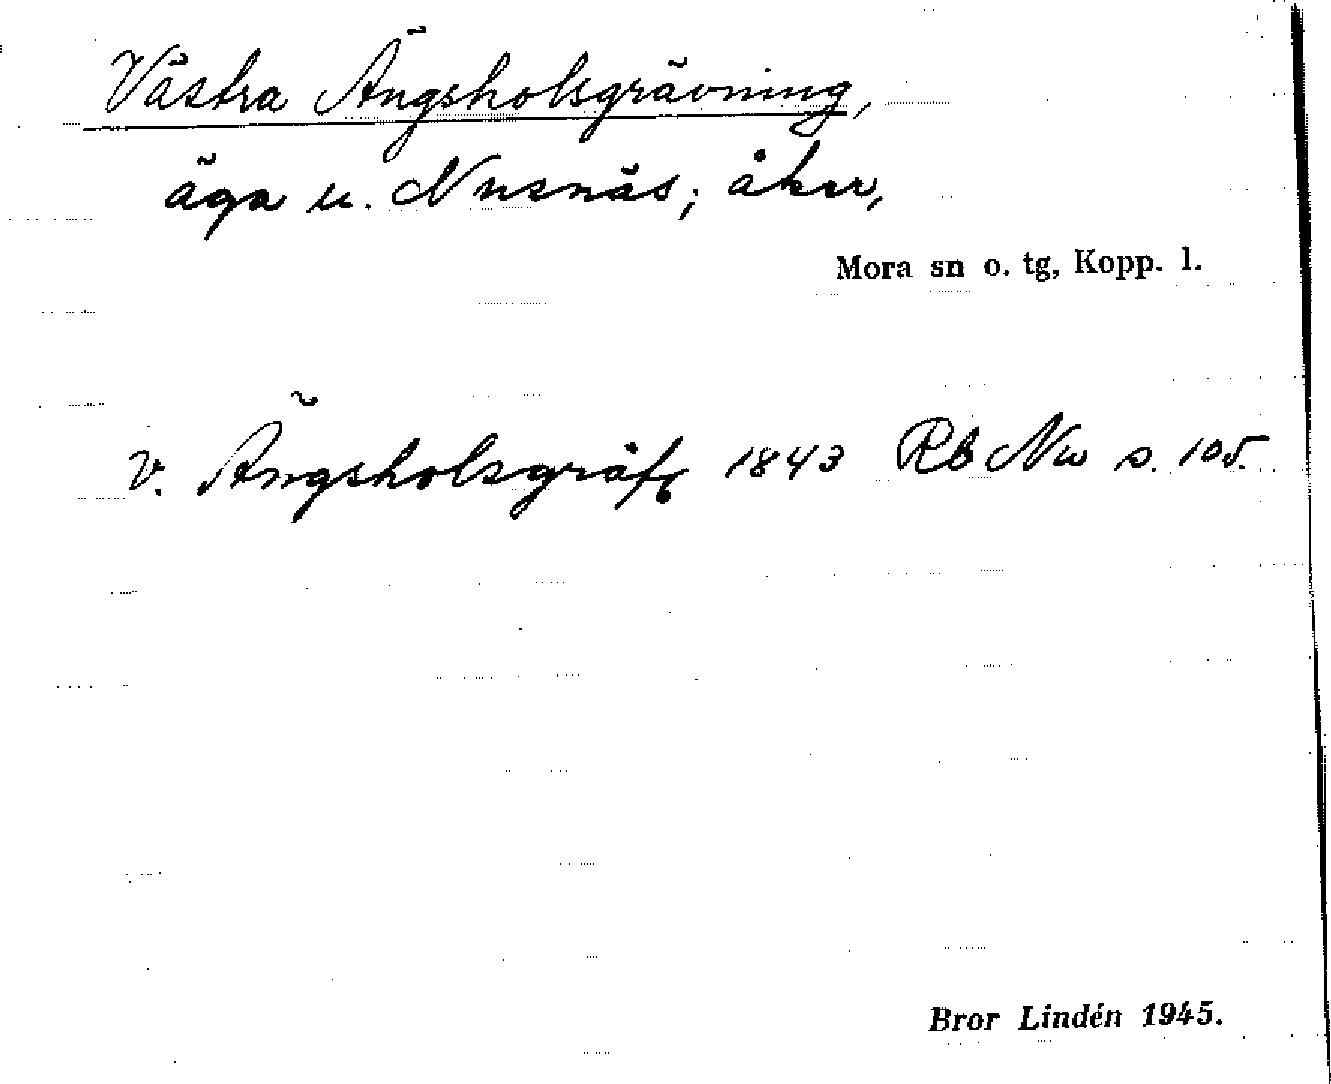 Västra Ängsholsgrävning,
äga u. Nusnäs; åker,
Mora sn o. tg, Kopp. l.
V. Ängsholsgräfg 1843 Rb Nu s. 105.
Bror Lindén 1945.